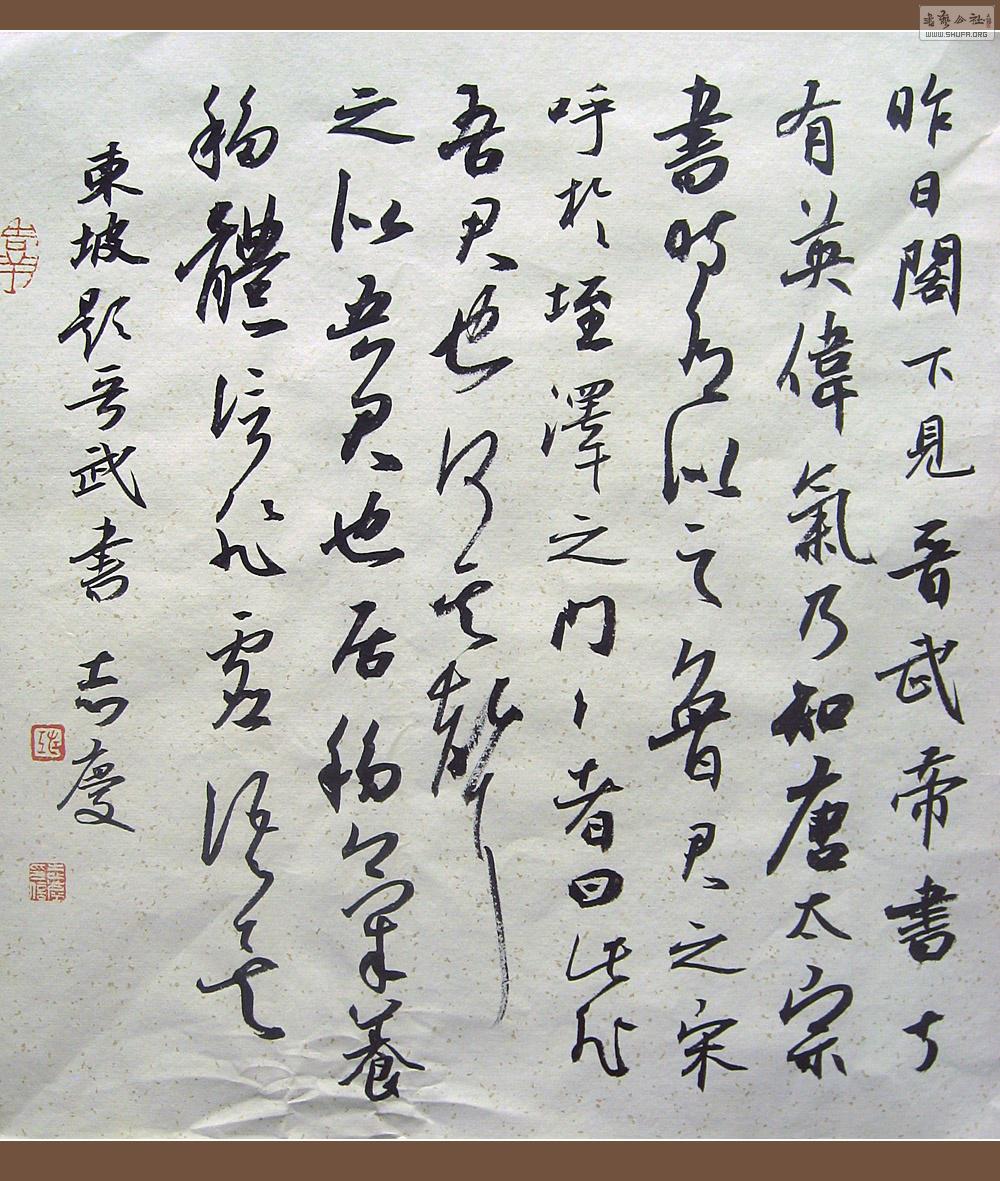 昨日閣下見晉武帝書甚
有英偉氣乃知唐太宗
書時有似之魯君之宋
呼於垤澤之門門者曰此非
吾君也何其聲
之似吾君也居移氣養
移體信非虛語矣
東坡題晉武書 志慶
書藝公社
WWW.SHUFA.ORG